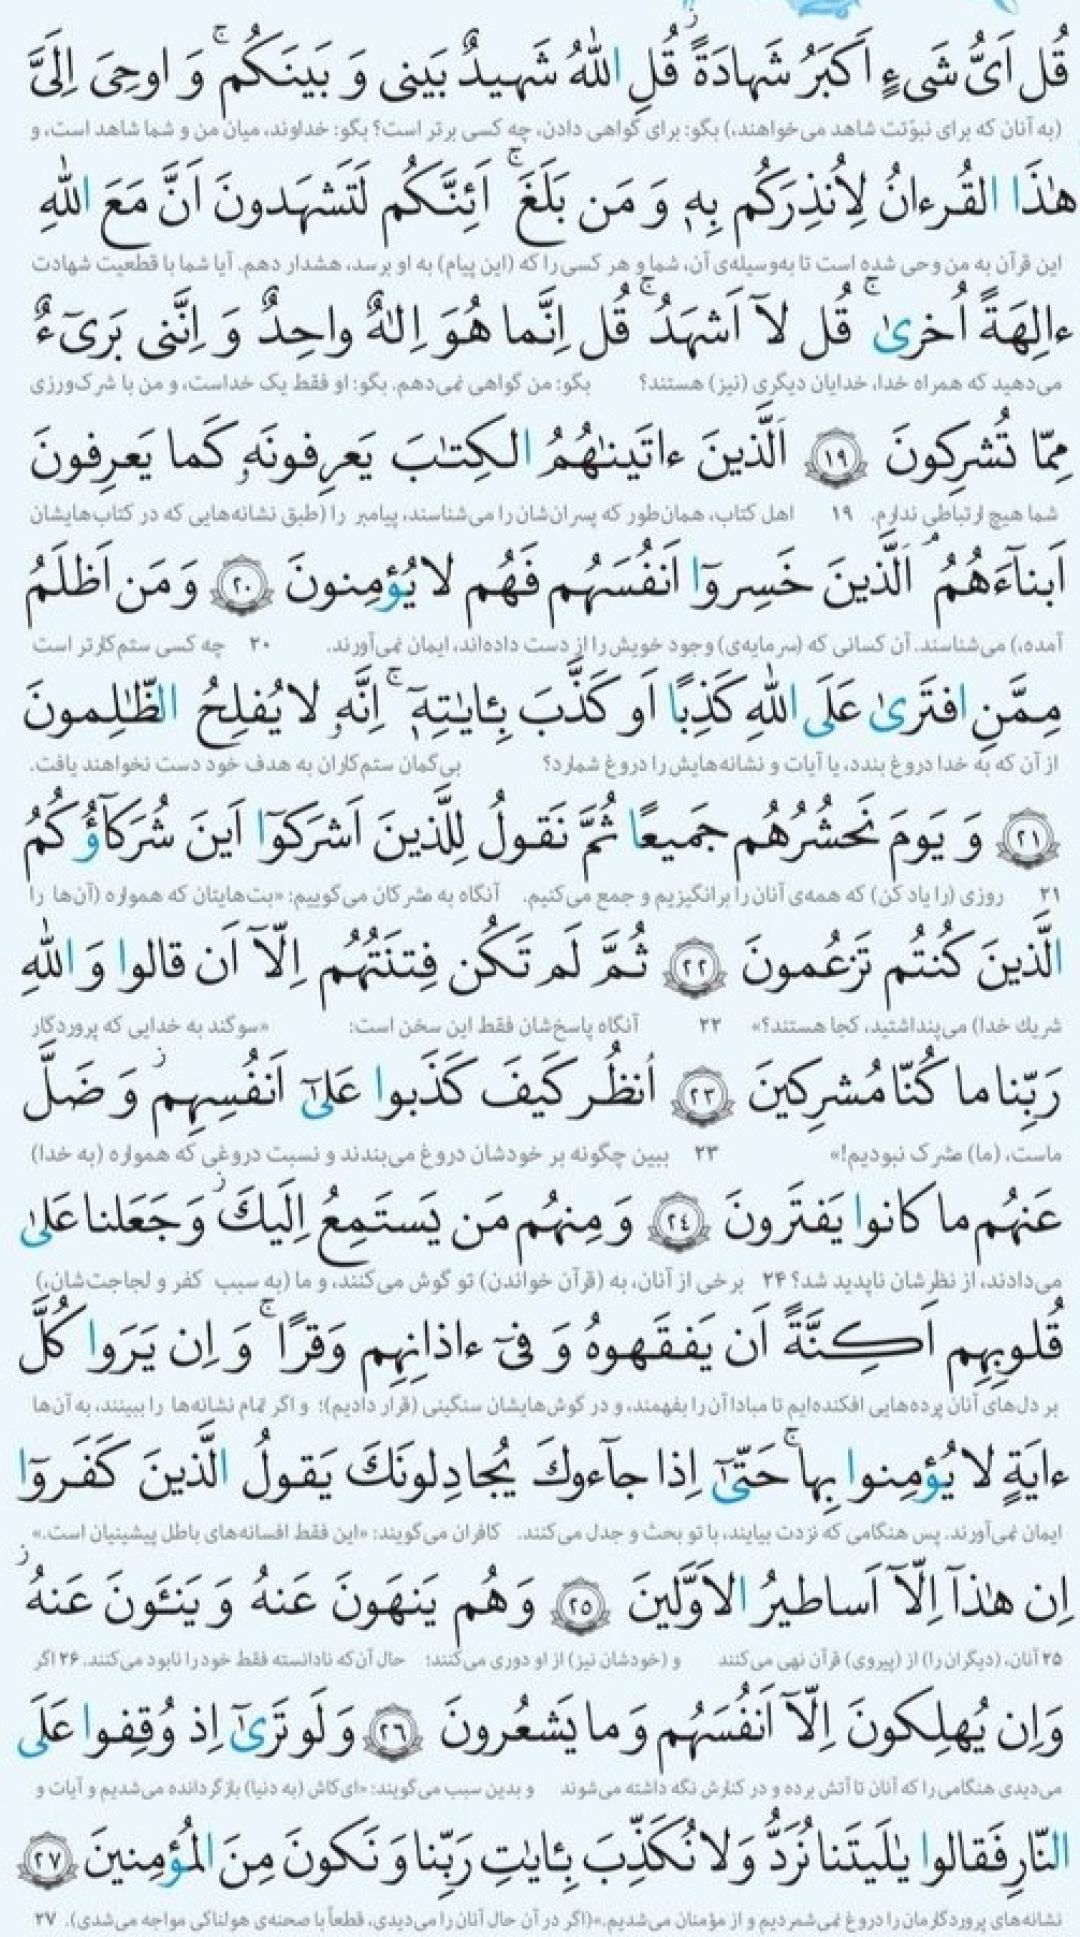 قُل اَیُّ شَیءٍ اَکبَرُ شَهادَةً ۖ قُلِ اللّٰهُ شَهیدٌ بَینی وَ بَینَکُم ۚ وَ اوحِیَ اِلَیَّ
(به آنان که برای نبوّتت شاهد می‌خواهند،) بگو: برای گواهی دادن، چه کسی برتر است؟ بگو: خداوند، میان من و شما شاهد است، و
هٰذَا القُرءانُ لِاُنذِرَکُم بِهٖ وَ مَن بَلَغَ ۚ اَئِنَّکُم لَتَشهَدونَ اَنَّ مَعَ اللّٰهِ
این قرآن به من وحی شده است تا به‌وسیله‌ی آن، شما و هر کسی را که (این پیام) به او برسد، هشدار دهم. آیا شما با قطعیت شهادت
ءالِهَةً اُخریٰ ۚ قُل لآ اَشهَدُ ۚ قُل اِنَّما هُوَ اِلٰهٌ واحِدٌ وَ اِنَّنی بَریءٌ
می‌دهید که همراه خدا، خدایان دیگری (نیز) هستند؟ بگو: من گواهی نمی‌دهم. بگو: او فقط یک خداست، و من با شرک‌ورزی
مِمّا تُشرِکونَ ﴿١٩﴾ اَلَّذینَ ءاتَینٰهُمُ الکِتٰبَ یَعرِفونَهٗ کَما یَعرِفونَ
شما هیچ ارتباطی ندارم. ۱۹ اهل کتاب، همان‌طور که پسران‌شان را می‌شناسند، پیامبر را (طبق نشانه‌هایی که در کتاب‌هایشان
اَبنآءَهُمُ ۘ اَلَّذینَ خَسِروٓا اَنفُسَهُم فَهُم لا یُؤمِنونَ ﴿٢٠﴾ وَ مَن اَظلَمُ
آمده،) می‌شناسند. آن کسانی که (سرمایه‌ی) وجود خویش را از دست داده‌اند، ایمان نمی‌آورند. ۲۰ چه کسی ستم‌کارتر است
مِمَّنِ افتَریٰ عَلَی اللّٰهِ کَذِبًا اَو کَذَّبَ بِـٔایٰتِهٖٓ ۚ اِنَّهٗ لا یُفلِحُ الظّٰلِمونَ
از آن که به خدا دروغ بندد، یا آیات و نشانه‌هایش را دروغ شمارد؟ بی‌گمان ستم‌کاران به هدف خود دست نخواهند یافت.
﴿٢١﴾ وَ یَومَ نَحشُرُهُم جَمیعًا ثُمَّ نَقولُ لِلَّذینَ اَشرَکوٓا اَینَ شُرَکآؤُکُمُ
۲۱ روزی (را یاد کن) که همه‌ی آنان را برانگیزیم و جمع می‌کنیم. آنگاه به مشرکان می‌گوییم: «بت‌هایتان که همواره (آن‌ها را
الَّذینَ کُنتُم تَزعُمونَ ﴿٢٢﴾ ثُمَّ لَم تَکُن فِتنَتُهُم اِلّآ اَن قالوا وَ اللّٰهِ
شریك خدا) می‌پنداشتید، کجا هستند؟» ۲۲ آنگاه پاسخ‌شان فقط این سخن است: «سوگند به خدایی که پروردگار
رَبِّنا ما کُنّا مُشرِکینَ ﴿٢٣﴾ اُنظُر کَیفَ کَذَبوا عَلیٰٓ اَنفُسِهِم ۚ وَ ضَلَّ
ماست، (ما) مشرک نبودیم!» ۲۳ ببین چگونه بر خودشان دروغ می‌بندند و نسبت دروغی که همواره (به خدا)
عَنهُم ما کانوا یَفتَرونَ ﴿٢٤﴾ وَ مِنهُم مَن یَستَمِعُ اِلَیكَ ۖ وَ جَعَلنا عَلیٰ
می‌دادند، از نظرشان ناپدید شد؟ ۲۴ برخی از آنان، به (قرآن خواندن) تو گوش می‌کنند، و ما (به سبب کفر و لجاجت‌شان،)
قُلوبِهِم اَکِنَّةً اَن یَفقَهوهُ وَ فیٓ ءاذانِهِم وَقرًا ۚ وَ اِن یَرَوا کُلَّ
بر دل‌های آنان پرده‌هایی افکنده‌ایم تا مبادا آن را بفهمند، و در گوش‌هایشان سنگینی (قرار دادیم)؛ و اگر تمام نشانه‌ها را ببینند، به آن‌ها
ءایَةٍ لا یُؤمِنوا بِها ۚ حَتّیٰٓ اِذا جآءوكَ یُجادِلونَكَ یَقولُ الَّذینَ کَفَروٓا
ایمان نمی‌آورند. پس هنگامی که نزدت بیایند، با تو بحث و جدل می‌کنند. کافران می‌گویند: «این فقط افسانه‌های باطل پیشینیان است.»
اِن هٰذآ اِلّآ اَساطیرُ الاَوَّلینَ ﴿٢٥﴾ وَ هُم یَنهَونَ عَنهُ وَ یَنـَٔونَ عَنهُ ۖ
۲۵ آنان، (دیگران را) از (پیروی) قرآن نهی می‌کنند و (خودشان نیز) از او دوری می‌کنند؛ حال آن‌که نادانسته فقط خود را نابود می‌کنند. ۲۶ اگر
وَ اِن یُهلِکونَ اِلّآ اَنفُسَهُم وَ ما یَشعُرونَ ﴿٢٦﴾ وَ لَو تَریٰٓ اِذ وُقِفوا عَلَی
می‌دیدی هنگامی را که آنان تا آتش برده و در کنارش نگه داشته می‌شوند و بدین سبب می‌گویند: «ای کاش (به دنیا) بازگردانده می‌شدیم و آیات و
النّارِ فَقالوا یٰلَیتَنا نُرَدُّ وَ لا نُکَذِّبَ بِـٔایٰتِ رَبِّنا وَ نَکونَ مِنَ المُؤمِنینَ ﴿٢٧﴾
نشانه‌های پروردگارمان را دروغ نمی‌شمردیم و از مؤمنان می‌شدیم.»(اگر در آن حال آنان را می‌دیدی، قطعاً با صحنه‌ی هولناکی مواجه می‌شدی). ۲۷